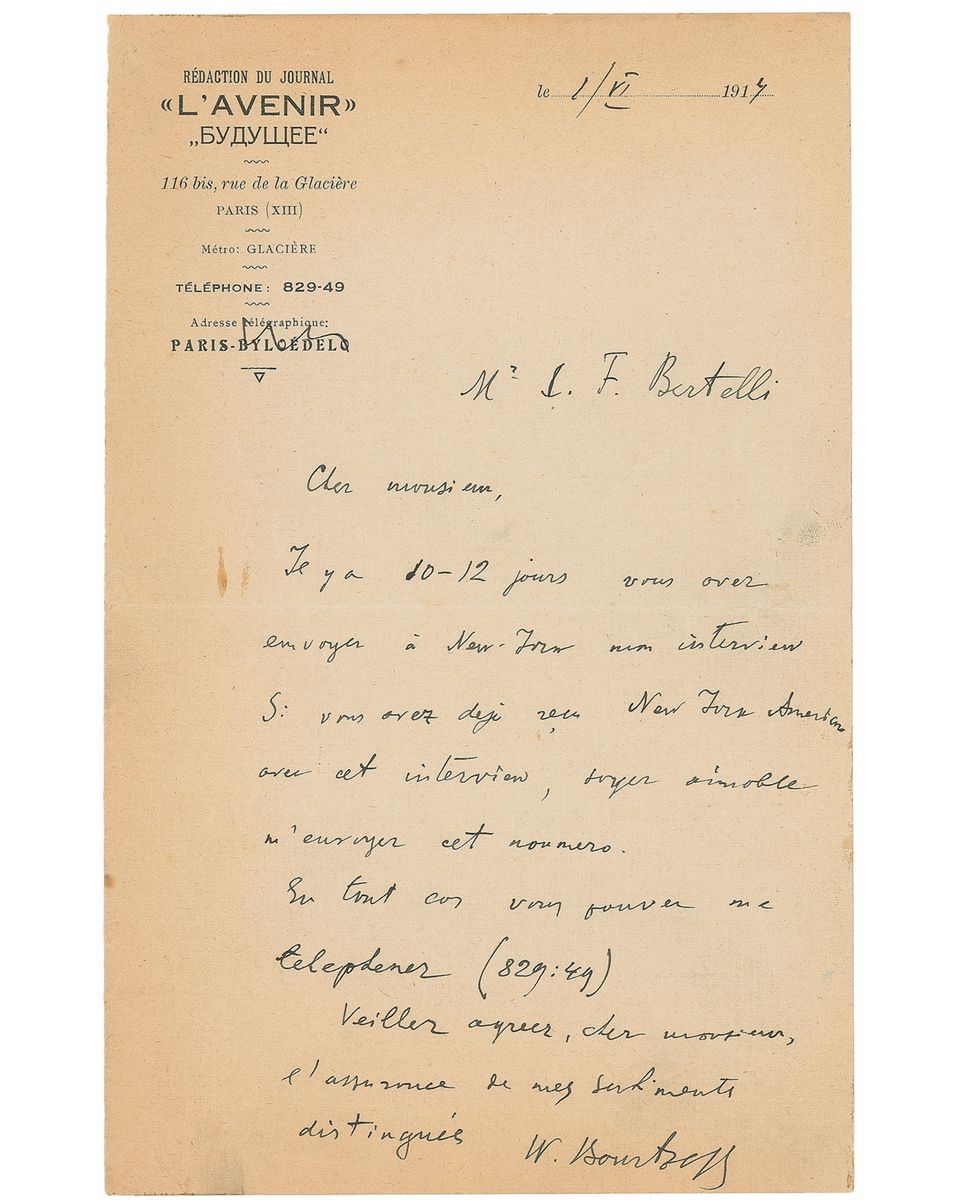 RÉDACTION DU JOURNAL
«L'AVENIR»
„БУДУЩЕЕ“
116 bis, rue de la Glacière
PARIS (XIII)
Métro: GLACIÈRE
TÉLÉPHONE: 829-49
Adresse télégraphique:
PARIS-BYLOEDELO
le 1/VI 1917
Mr F. Bertelli
Cher monsieur,
Il y a 10-12 jours vous avez
envoyer à New-York mon interview
Si vous avez deja reçu New York American
avec cet interview, soyer aimable
m'envoyer cet noumero.
En tout cas vous pouver me
telephoner (829:49)
Veiller agreer, cher monsieur,
l'assurance de mes sentiments
distingués
W. Bourtzeff